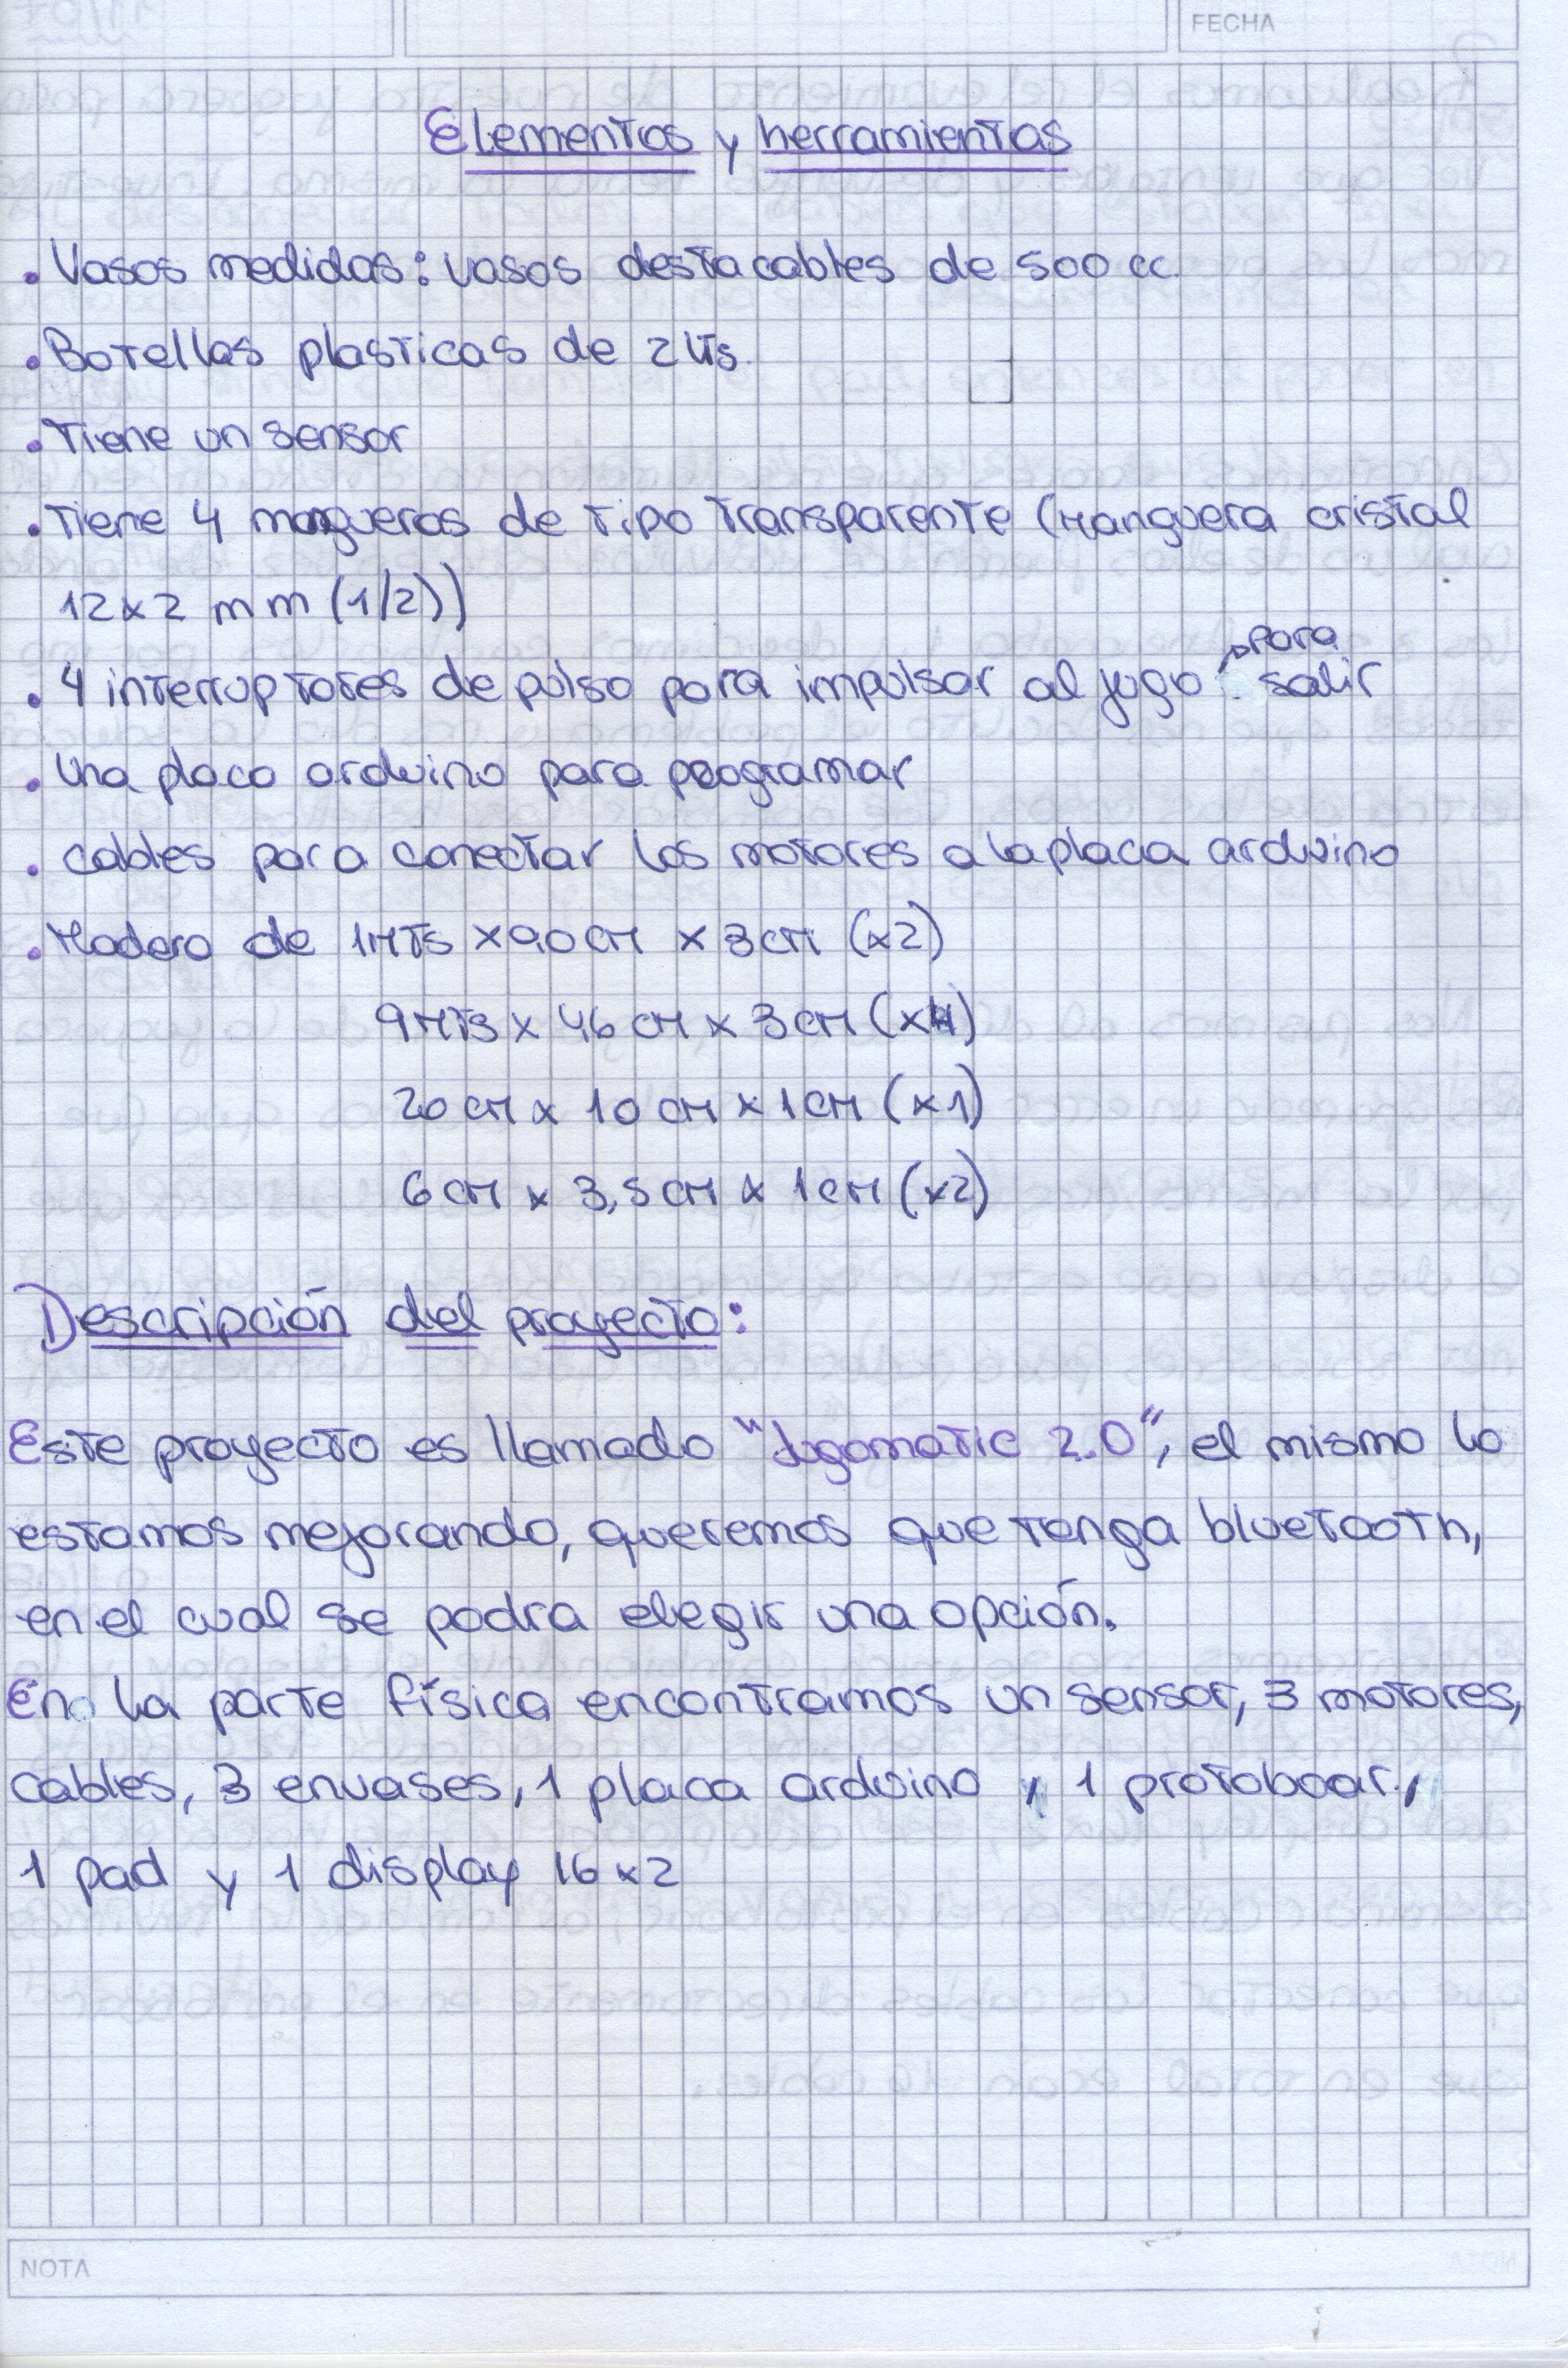 FECHA
Elementos y herramientas
• Vasos medidas: vasos destacables de 500 cc.
• Botellas plasticas de 2 lts.
• Tiene un sensor
• Tiene 4 mangueras de tipo transparente (Manguera cristal
12x2 mm (1/2))
para
• 4 interruptores de pulso para impulsar al jugo salir
• Una placa arduino para programar
• cables para conectar los motores a la placa arduino
• Madera de 1Mts x 90 cm x 3 cm (x2)
9Mts x 46 cm x 3 cm (x4)
20 cm x 10 cm x 1 cm (x1)
6 cm x 3,5 cm x 1 cm (x2)
Descripción del proyecto:
Este proyecto es llamado "Jugomatic 2.0", el mismo lo
estamos mejorando, queremos que tenga bluetooth,
en el cual se podra elegir una opción.
En la parte física encontramos un sensor, 3 motores,
cables, 3 envases, 1 placa arduino, 1 protoboar,
1 pad y 1 display 16x2
NOTA